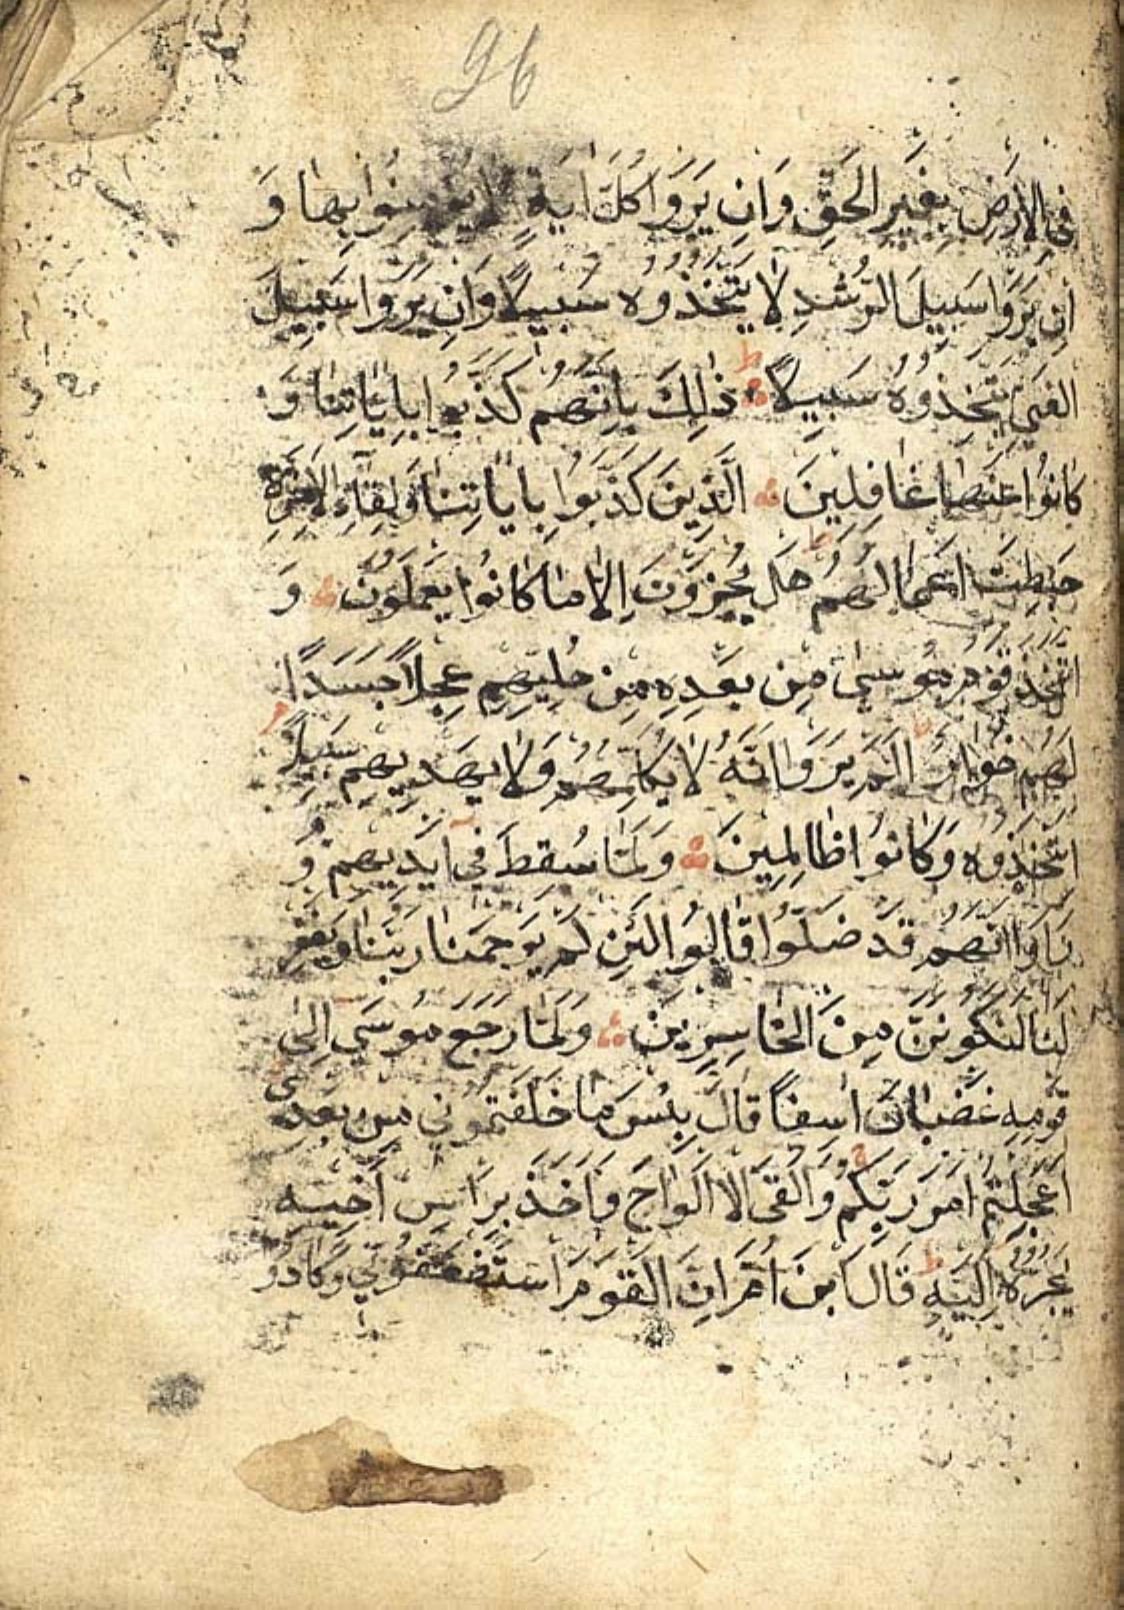 96
فِي الْاَرْضِ بِغَيْرِ الْحَقِّ وَاِنْ يَرَوْا كُلَّ اٰيَةٍ لَا يُؤْمِنُوا بِهَا وَ
اِنْ يَرَوْا سَبِيلَ الرُّشْدِ لَا يَتَّخِذُوهُ سَبِيلًا وَاِنْ يَرَوْا سَبِيلَ
الْغَيِّ يَتَّخِذُوهُ سَبِيلًا ط ذٰلِكَ بِاَنَّهُمْ كَذَّبُوا بِاٰيَاتِنَا وَ
كَانُوا عَنْهَا غَافِلِينَ اَلَّذِينَ كَذَّبُوا بِاٰيَاتِنَا وَلِقَاءِ الْاٰخِرَةِ
حَبِطَتْ اَعْمَالُهُمْ ط هَلْ يُجْزَوْنَ اِلَّا مَا كَانُوا يَعْمَلُونَ وَ
اتَّخَذَ قَوْمُ مُوسٰى مِنْ بَعْدِهِ مِنْ حُلِيِّهِمْ عِجْلًا جَسَدًا
لَهُ خُوَارٌ اَلَمْ يَرَوْا اَنَّهُ لَا يُكَلِّمُهُمْ وَلَا يَهْدِيهِمْ سَبِيلًا م
اِتَّخَذُوهُ وَكَانُوا ظَالِمِينَ وَلَمَّا سُقِطَ فِي اَيْدِيهِمْ وَ
رَاَوْا اَنَّهُمْ قَدْ ضَلُّوا قَالُوا لَئِنْ لَمْ يَرْحَمْنَا رَبُّنَا وَيَغْفِرْ
لَنَا لَنَكُونَنَّ مِنَ الْخَاسِرِينَ وَلَمَّا رَجَعَ مُوسٰى اِلٰى
قَوْمِهِ غَضْبَانَ اَسِفًا قَالَ بِئْسَ مَا خَلَفْتُمُونِي مِنْ بَعْدِي
اَعَجِلْتُمْ اَمْرَ رَبِّكُمْ ج وَاَلْقَى الْاَلْوَاحَ وَاَخَذَ بِرَاْسِ اَخِيهِ
يَجُرُّهُ اِلَيْهِ ط قَالَ ابْنَ اُمَّ اِنَّ الْقَوْمَ اسْتَضْعَفُونِي وَكَادُو